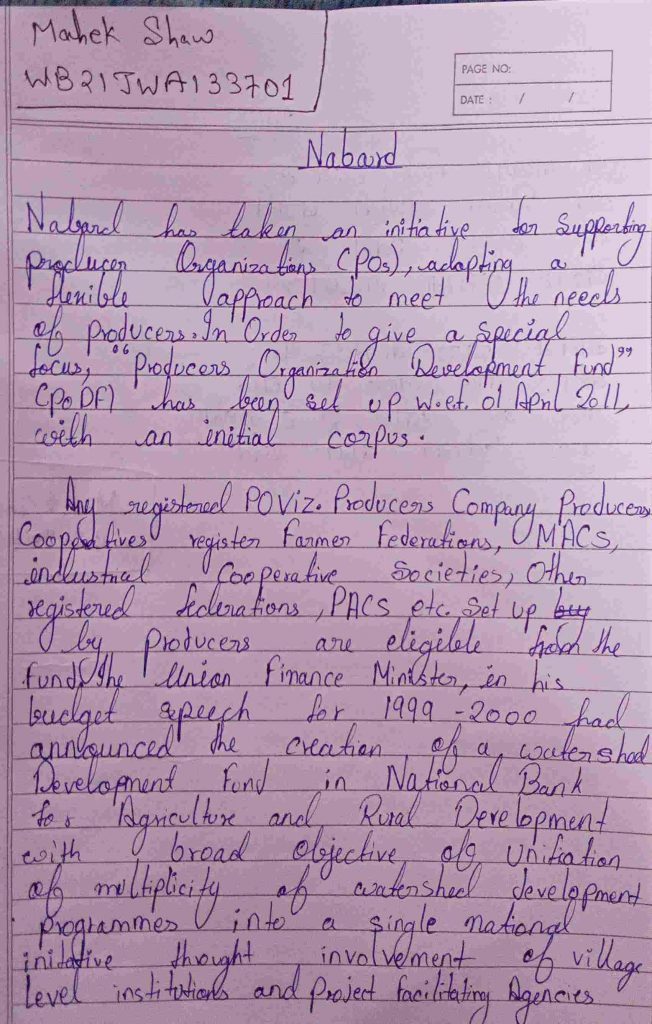 Mahek Shaw
WB21JWA133701
PAGE NO:
DATE : / /
Nabard
Nabard has taken an initiative for Supporting
producer Organizations (POs), adapting a
flexible approach to meet the needs
of producers. In Order to give a special
focus, "Producers Organization Development Fund"
(PODF) has been set up w.e.f. 01 April 2011,
with an initial corpus.
Any registered PO Viz. Producers Company Producers
Cooperatives register Farmer Federations, MACS,
industrial Cooperative Societies, Other
registered federations, PACS etc. Set up
by producers are eligible from the
fund the Union Finance Minister, in his
budget speech for 1999-2000 had
announced the creation of a watershed
Development Fund in National Bank
for Agriculture and Rural Development
with broad objective of
of multiplicity of watershed development
programmes into a single national
thought involvement of village
level institutions and project facilitating Agencies